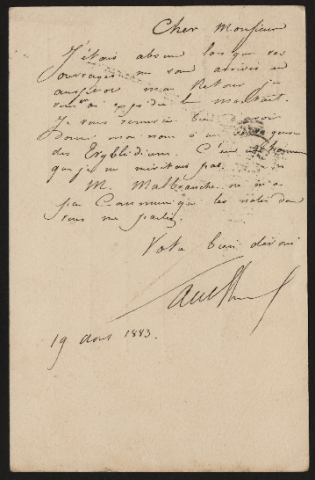 Cher Monsieur
J'étais absent lorsque vos
ouvrages me sont arrivés et
mon Retour je
vous ai expédié le montant.
Je vous remercie bien d'avoir
donné mon nom à un
des Eryblidiens. C'est
que je ne méritais pas
M. Malbranche ne m'a
pas Communiqué les notes dont
vous me parlez.
Votre bien dévoué
19 aout 1883.